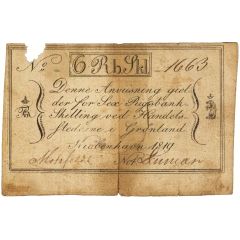 No 6 RbSkl. 1663
Denne Anviisning giel-
der for Sex Rigsbank-
Skilling ved Handels-
stederne i Grönland.
Kiöbenhavn 1819
Motzfeldt